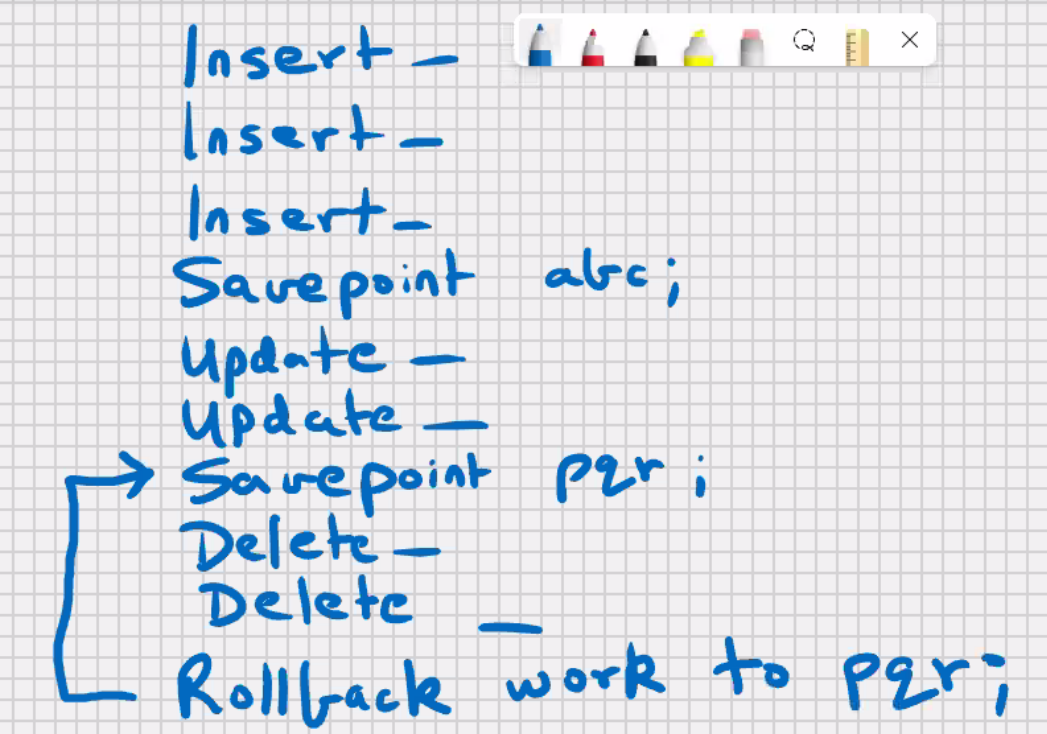 Insert –
Insert –
Insert –
Savepoint abc;
Update –
Update –
Savepoint pqr;
Delete –
Delete –
Rollback work to pqr;